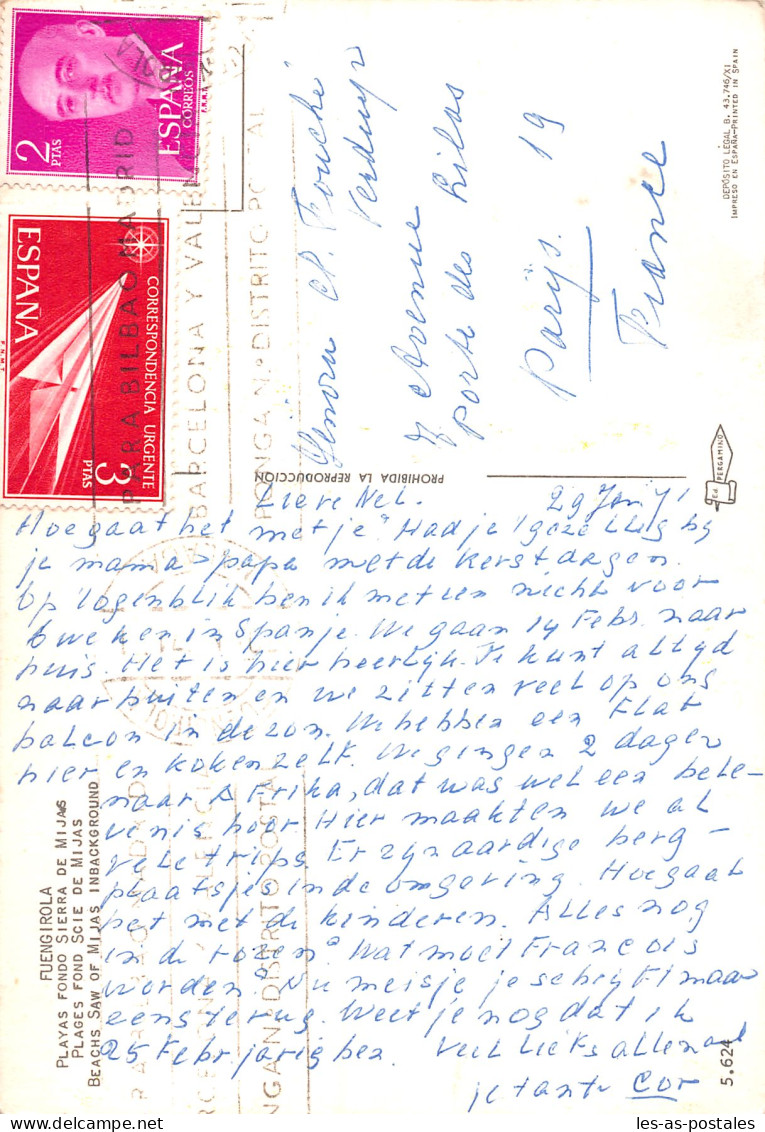 ESPAÑA
CORREOS
2 PTAS
F.N.M.T.
CORRESPONDENCIA URGENTE
ESPAÑA
3 PTAS
F.N.M.T.
PARA BILBAO MADRID
BARCELONA Y VALEN
PONGA N.º DISTRITO POSTAL
Fouché
Verduyn
7 Avenue
Porte des Lilas
Parijs. 19
France
DEPÓSITO LEGAL B. 43.746/XI
IMPRESO EN ESPAÑA-PRINTED IN SPAIN
PROHIBIDA LA REPRODUCCION
Ed. PERGAMINO
Lieve Nel. 29 Jan 71
Hoe gaat het met je? Had je 't gezellig by
je mama > papa met de kerstdagen.
Op 't ogenblik ben ik met een nicht voor
6 weken in Spanje. We gaan 14 Febr. naar
huis. Het is hier heerlijk. Je kunt altyd
naar buiten en we zitten veel op ons
balcon in de zon. We hebben een Flat
hier en koken zelf. We gingen 2 dagen
naar Afrika, dat was wel een bele-
venis hoor Hier maakten we al
vele trips. Er zyn aardige berg-
plaatsjes in de omgeving. Hoe gaat
het met de kinderen. Alles nog
in de rozen? Wat moet Francois
worden? Nu meisje je schryft maar
eens terug. Weet je nog dat ik
25 Febr jarig ben. Veel liefs allemaal
je tante Cor
FUENGIROLA
PLAYAS FONDO SIERRA DE MIJAS
PLAGES FOND SCIE DE MIJAS
BEACHS SAW OF MIJAS INBACKGROUND
5.624
les-as-postales